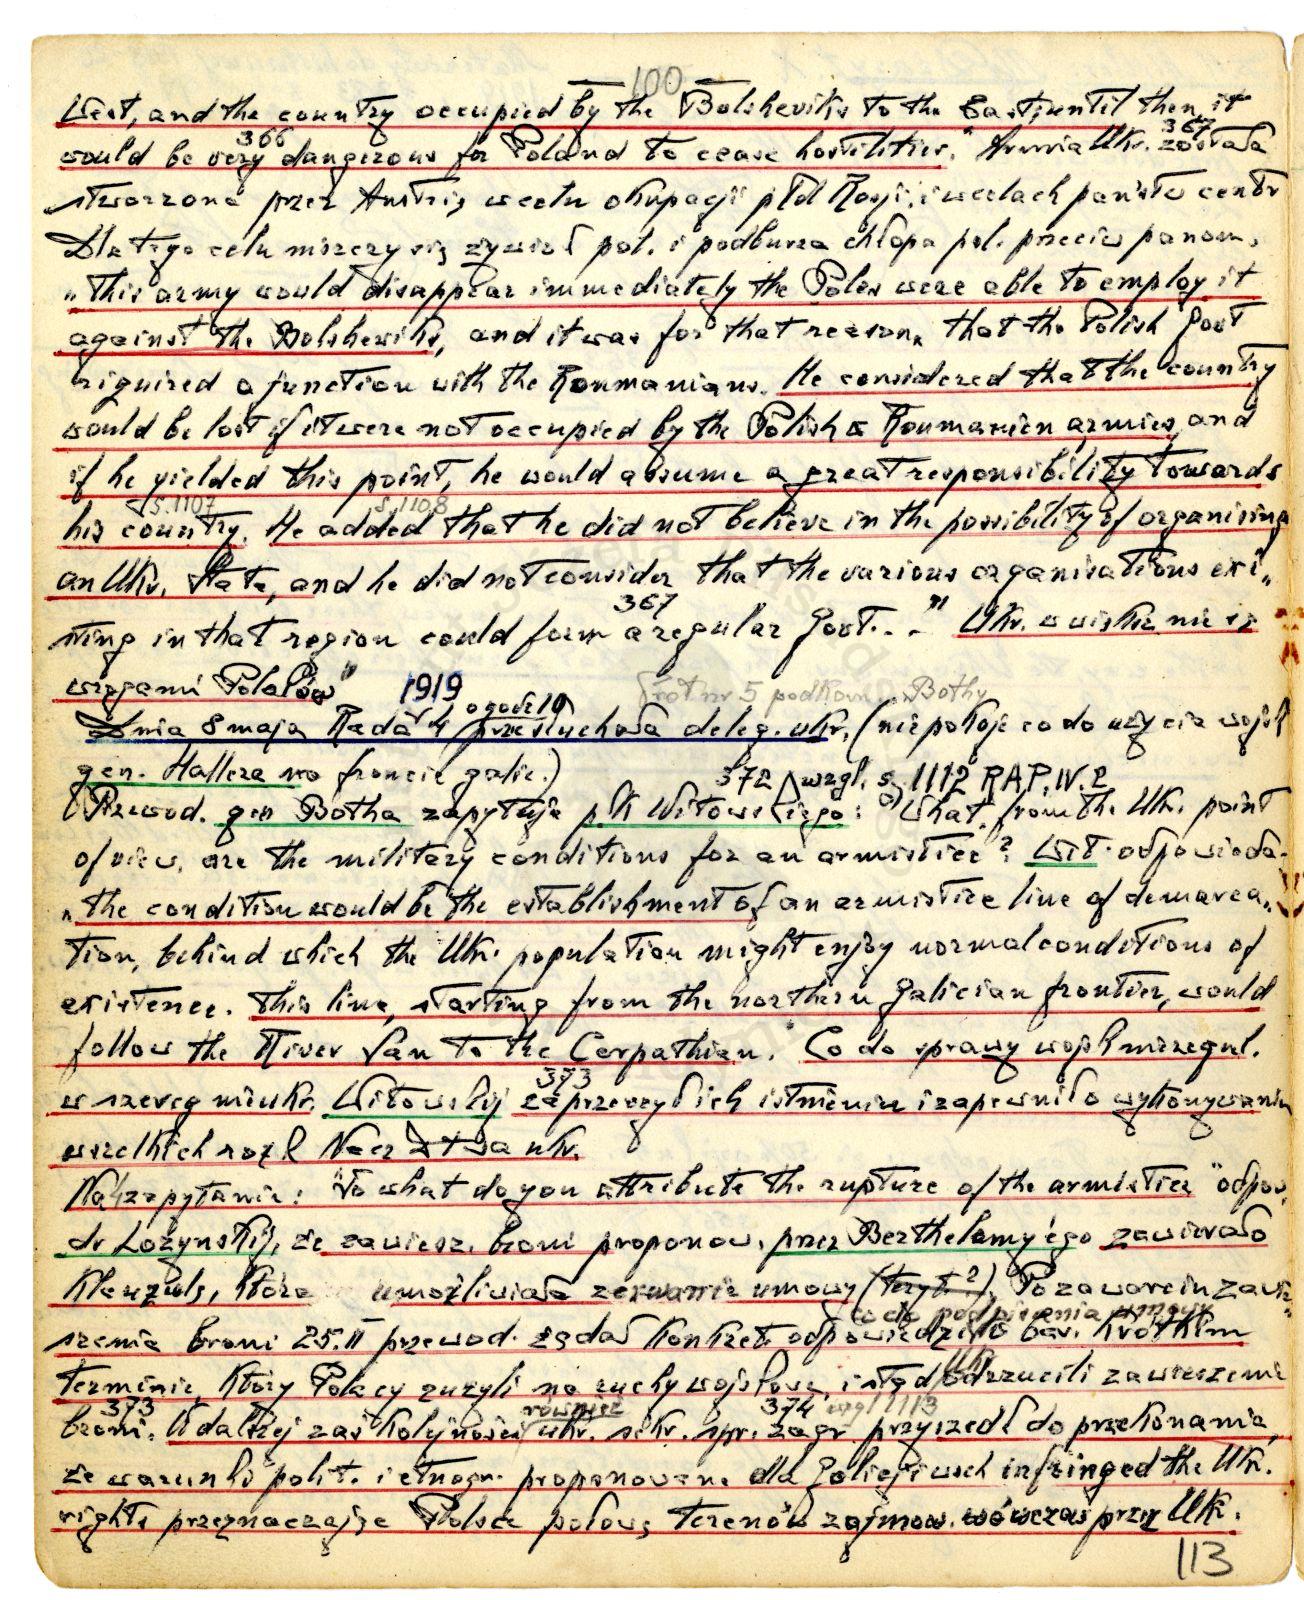 100
West, and the country occupied by the Bolsheviks to the East; until then, it
366 367
would be very dangerous for Poland to cease hostilities." Armia Ukr. została
stworzona przez Austrię w celu okupacji płd Rosji, i w celach państw centr
Dla tego celu niszczy się żywioł pol. i podburza chłopa pol. przeciw panom,
"this army would disappear immediately the Poles were able to employ it
against the Bolsheviks, and it was for that reason, that the Polish Govt
riquired a junction with the Roumanians. He considered that the country
would be lost if it were not occupied by the Polish & Roumanien armies, and
if he yielded this point, he would assume a great responsibility towards
s.1107 s.1108
his country. He added that he did not believe in the possibility of organising
an Ukr. State, and he did not consider that the various organisations exi„
367
sting in that region could form a regular Govt..." Ukr. w większ. nie są
wrogami Polaków" 1919 Prot nr 5 podkom. Bothy
Dnia 8 maja Rada 4 o godz 10 przesłuchała deleg. ukr. (niepokoje co do użycia wojsk
gen. Hallera na froncie galic.) 372 wzgl. s. 1112 RAP. IV. 2
Przewod. gen Botha zapytuje płk Witowskiego: "What, from the Ukr. point
of view, are the military conditions for an armistice"? Wit. odpowiada.
"the condition would be the establishment of an armistice line of demarca„
tion, behind which the Ukr. population might enjoy normal conditions of
existence. This line, starting from the northern Galician frontier, would
follow the River San to the Carpathian. Co do sprawy wojsk nieregul.
373
w szereg. ukr. Witowskij zaprzeczył ich istnieniu i zapewnił o wykonywaniu
wszelkich rozk Nacz D-twa ukr.
Na zapytanie: "To what do you attribute the rupture of the armistice" odpow.
dr Łozynskij, że zawiesz. broni proponow. przez Berthelamy'ego zawierało
klauzulę, która umożliwiała zerwanie umowy (tezyt?). Po zawarciu zawie„
co do podpisania umowy
szenia broni 25.II przewod. żądał konkret. odpowiedzi w bar. krótkim
Ukr.
terminie, który Polacy zużyli na ruchy wojskowe, i stąd odrzucili zawieszenie
373 również 374 wzgl 1113
broni. W dalszej zaś kolejności ukr. sekr. spr. zagr. przyszedł do przekonania,
że warunki polit. i etnogr. proponowane dla Galicji wsch infringed the Ukr.
rights przeznaczając Polsce połowę terenów zajmow. wówczas przez Ukr.
113